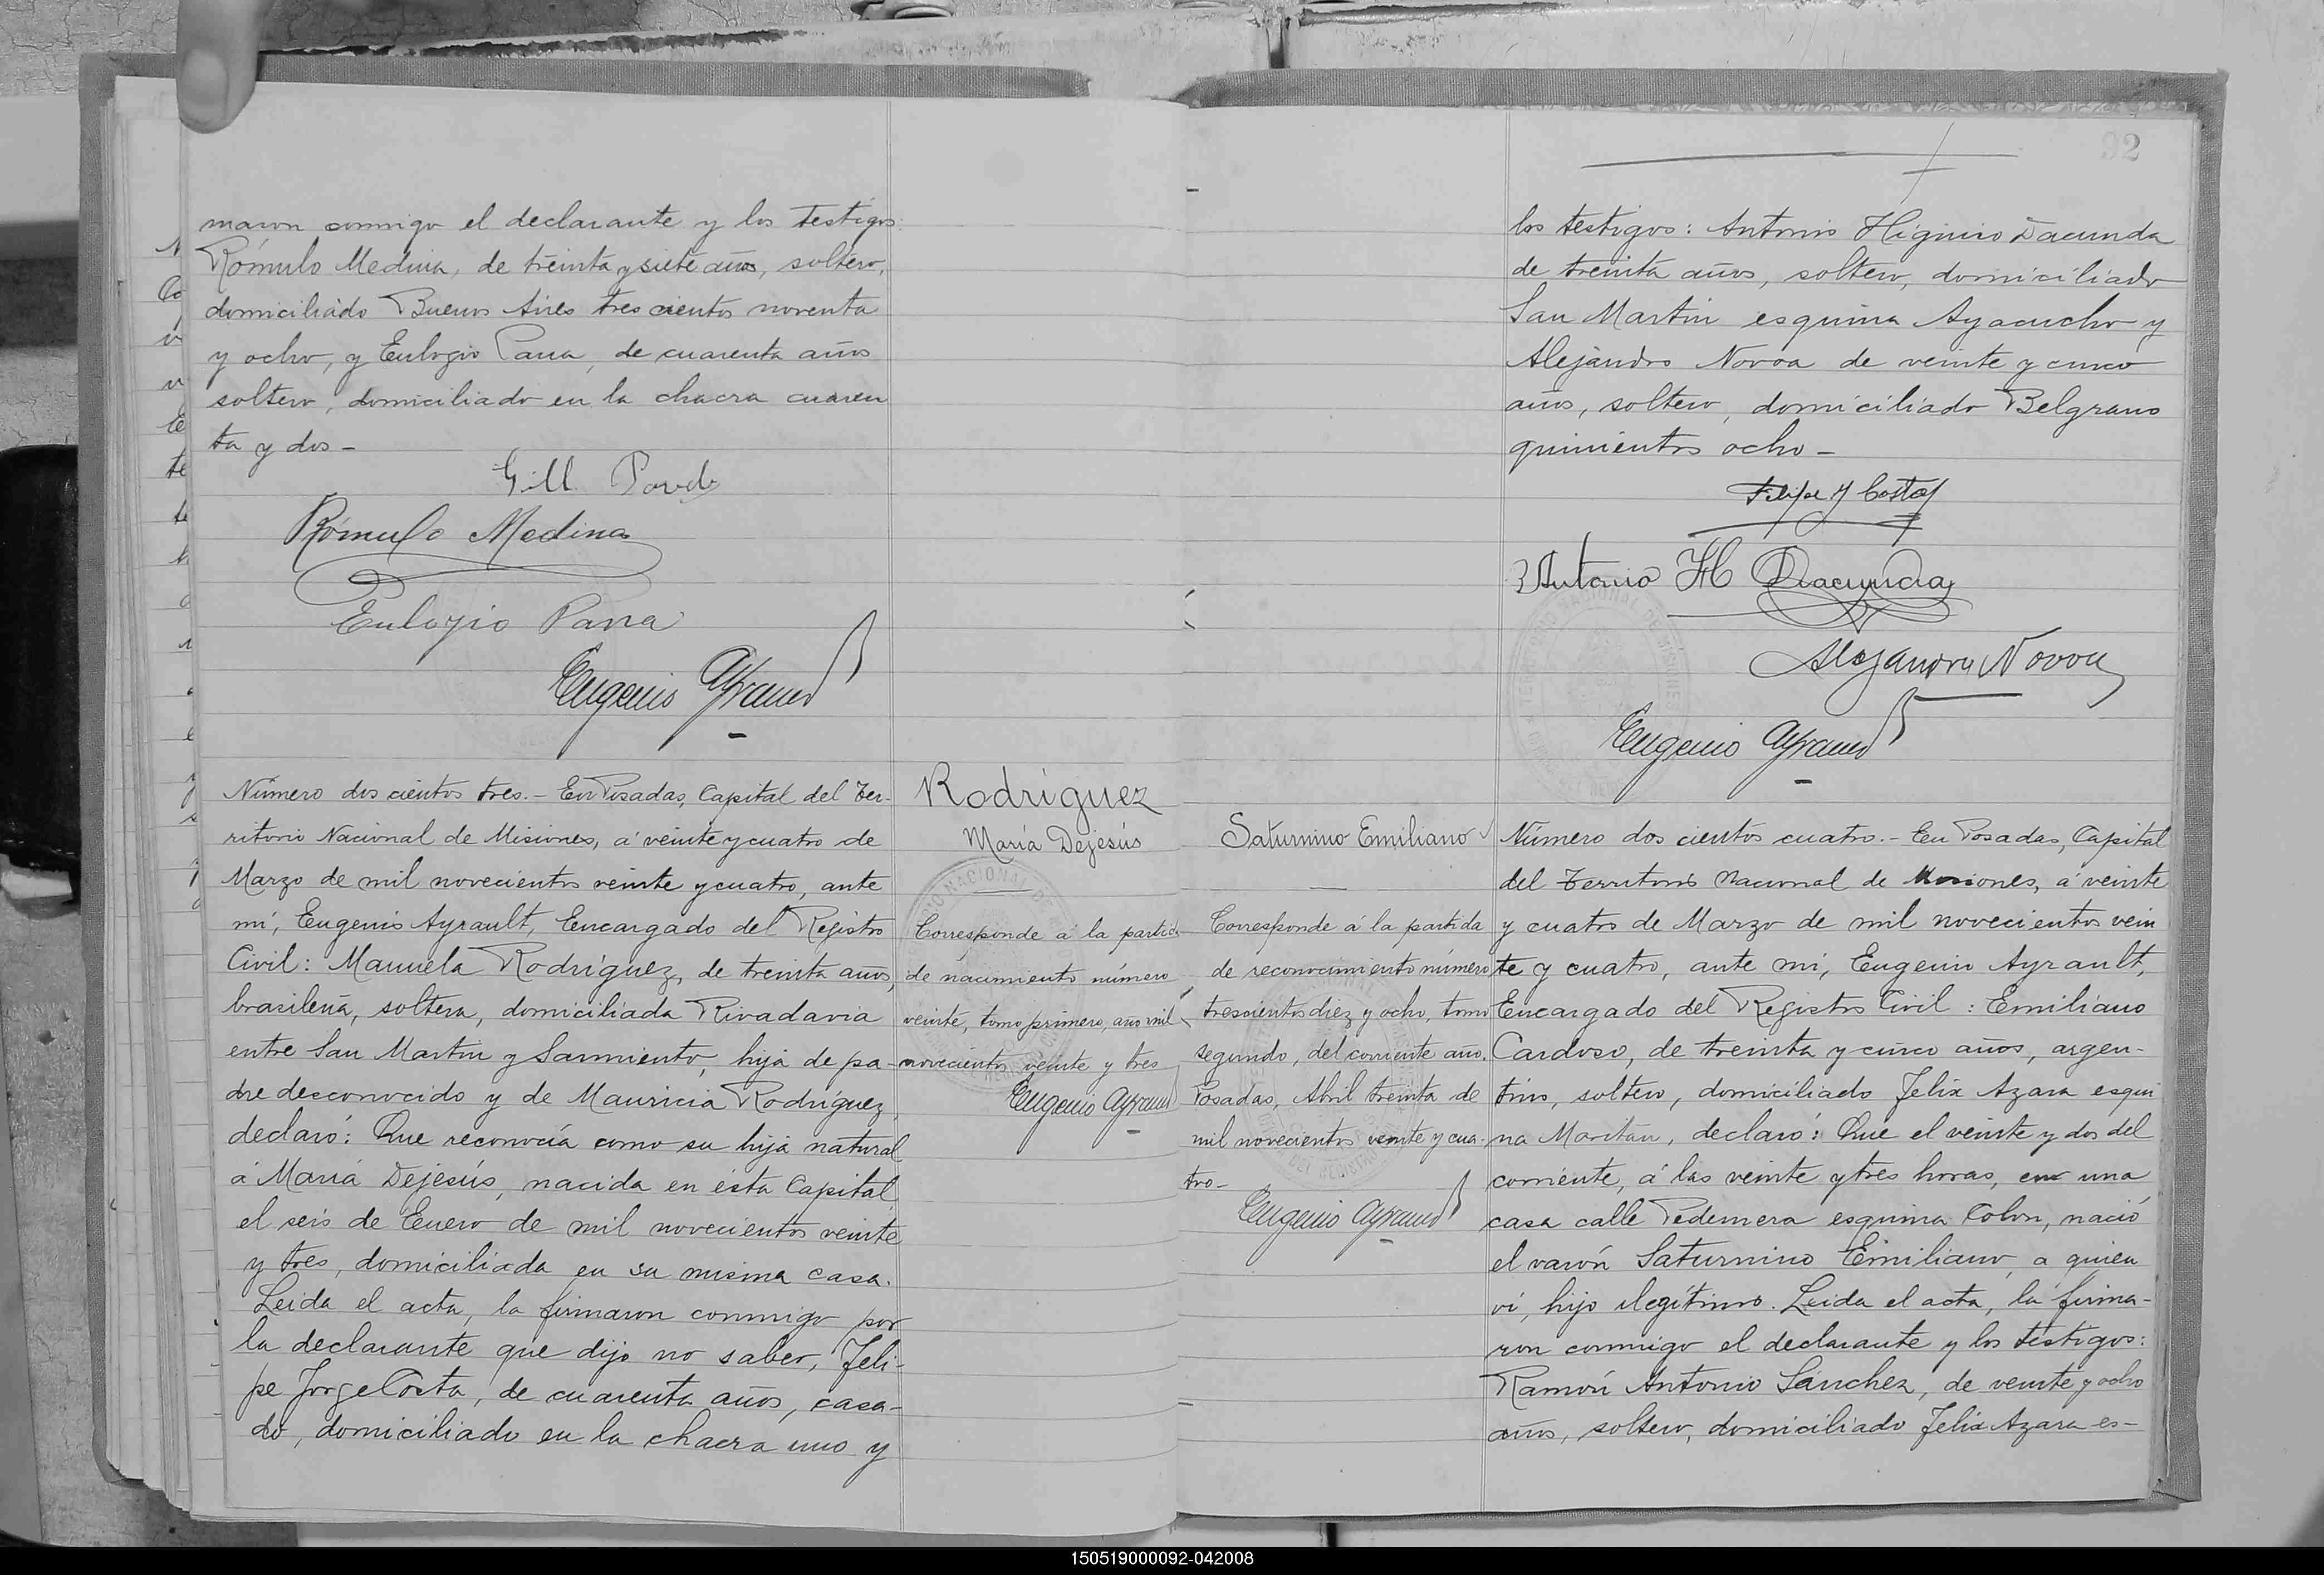 maron conmigo el declarante y los testigos:
Rómulo Medina, de treinta y siete años, soltero,
domiciliado Buenos Aires tres cientos noventa
y ocho, y Eulogio Parra, de cuarenta años
soltero, domiciliado en la chacra cuaren
ta y dos -
Rómulo Medina
Eulogio Parra
Eugenio Ayrault
Número dos cientos tres.- En Posadas, Capital del Ter-
ritorio Nacional de Misiones, á veinte y cuatro de
Marzo de mil novecientos veinte y cuatro, ante
mí, Eugenio Ayrault, Encargado del Registro
Civil: Manuela Rodríguez, de treinta años,
brasileña, soltera, domiciliada Rivadavia
entre San Martin y Sarmiento, hija de pa-
dre desconocido y de Mauricia Rodríguez,
declaró: Que reconocía como su hija natural
á María Dejesús, nacida en ésta Capital,
el seis de Enero de mil novecientos veinte
y tres, domiciliada en su misma casa.
Leida el acta, la firmaron conmigo por
la declarante que dijo no saber, Feli-
pe Jorge Costa, de cuarenta años, casa-
do, domiciliado en la chacra uno y
Rodríguez
María Dejesús
Corresponde á la partida
de nacimiento número
veinte, tomo primero, año mil
novecientos veinte y tres
Eugenio Ayrault
92
los testigos: Antonio Higinio Dacunda
de treinta años, soltero, domiciliado
San Martin esquina Ayacucho y
Alejandro Novoa de veinte y cinco
años, soltero, domiciliado Belgrano
quinientos ocho -
Felipe J Costa
Antonio H Dacunda
Alejandro Novoa
Eugenio Ayrault
Saturnino Emiliano
Corresponde á la partida
de reconocimiento número
trescientos diez y ocho, tomo
segundo, del corriente año.
Posadas, Abril treinta de
mil novecientos veinte y cua-
tro-
Eugenio Ayrault
Número dos cientos cuatro.- En Posadas, Capital
del Territorio Nacional de Misiones, á veinte
y cuatro de Marzo de mil novecientos vein
te y cuatro, ante mí, Eugenio Ayrault,
Encargado del Registro Civil: Emiliano
Cardoso, de treinta y cinco años, argen-
tino, soltero, domiciliado Felix Azara esqui
na Maitán, declaró: Que el veinte y dos del
corriente, á las veinte y tres horas, en una
casa calle Pedernera esquina Colon, nació
el varón Saturnino Emiliano, a quien
ví, hijo ilegítimo. Leida el acta, la firma-
ron conmigo el declarante y los testigos:
Ramón Antonio Sanchez, de veinte y ocho
años, soltero, domiciliado Felix Azara es-
150519000092-042008